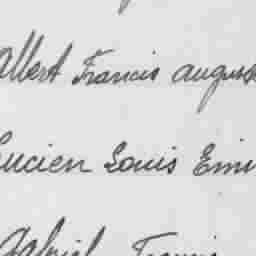 Albert Francis August
Lucien Louis Emi
Gabriel Francis